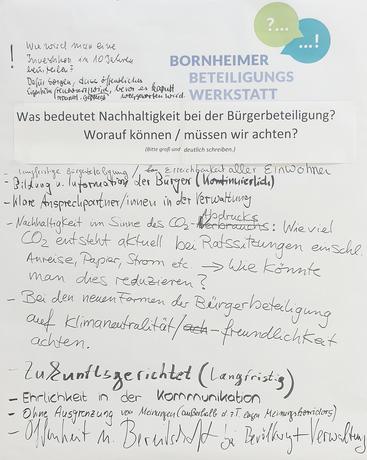 ?...
...!
BORNHEIMER
BETEILIGUNGS
WERKSTATT
! Wie wird man eine
Investition in 10 Jahren
beurteilen?
Dafür sorgen, dass öffentliches
wird, bevor es kaputt
weggeworfen wird.
Was bedeutet Nachhaltigkeit bei der Bürgerbeteiligung?
Worauf können / müssen wir achten?
(Bitte groß und deutlich schreiben.)
- Langfristige Bürgerbeteiligung / Erreichbarkeit aller Einwohner
- Bildung u. Information der Bürger (Kontinuierlich)
- Klare Ansprechpartner/innen in der Verwaltung
- Nachhaltigkeit im Sinne des CO2-Abdrucks: Wie viel
CO2 entsteht aktuell bei Ratssitzungen einschl.
Anreise, Papier, Strom etc. → Wie könnte
man dies reduzieren?
- Bei den neuen Formen der Bürgerbeteiligung
auf Klimaneutralität/-freundlichkeit
achten.
- Zukunftsgerichtet (Langfristig)
- Ehrlichkeit in der Kommunikation
- Ohne Ausgrenzung von Meinungen (außerhalb d. z.T. engen Meinungskorridors)
- Offenheit u. Bereitschaft bei Bevölkerung + Verwaltung